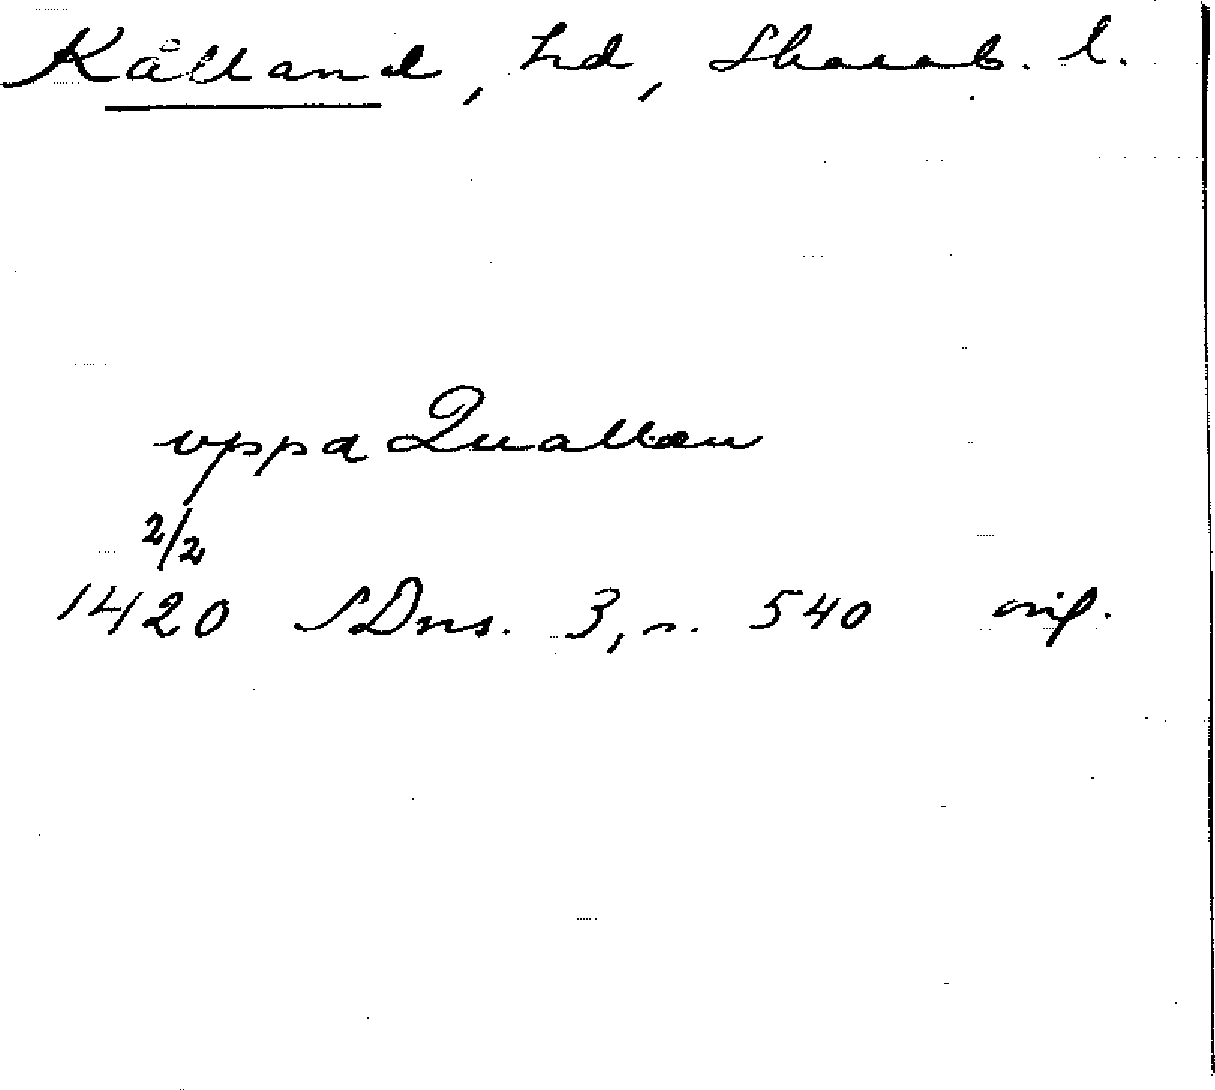 Kålland, hd, Skarab. l.
uppa Quallen
2/2
1420 SDns. 3, s. 540 orig.